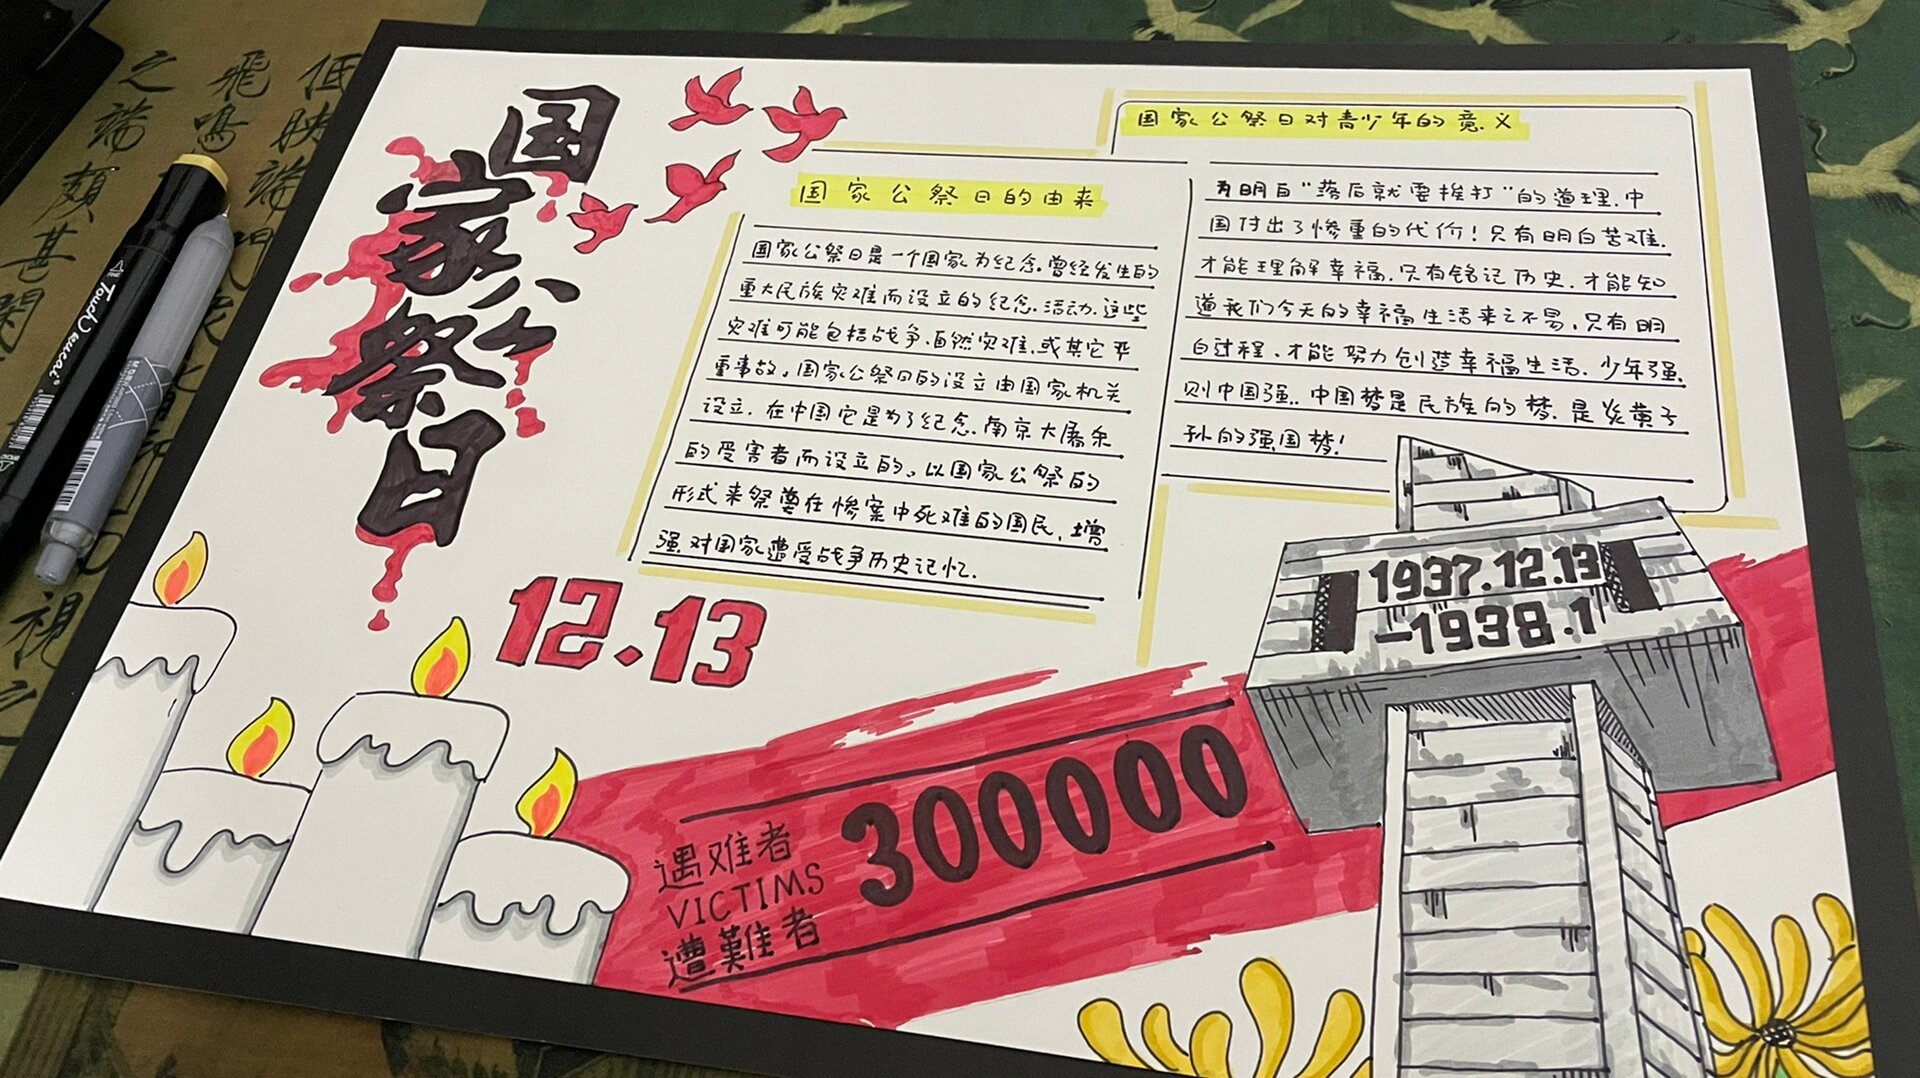 国家公祭日
12.13
国家公祭日的由来
国家公祭日是一个国家为纪念.曾经发生的
重大民族灾难而设立的纪念.活动.这些
灾难可能包括战争.自然灾难.或其它严
重事故。国家公祭日的设立由国家机关
设立.在中国它是为了纪念.南京大屠杀
的受害者而设立的。以国家公祭的
形式来祭奠在惨案中死难的国民,增
强.对国家遭受战争历史记忆.
国家公祭日对青少年的意义
为明白“落后就要挨打”的道理.中
国付出了惨重的代价!只有明白苦难.
才能理解幸福.只有铭记历史.才能知
道我们今天的幸福生活来之不易,只有明
白过程.才能努力创造幸福生活.少年强.
则中国强..中国梦是民族的梦.是炎黄子
孙的强国梦!
1937.12.13
-1938.1
遇难者
VICTIMS
遭難者
300000
Touch
之 飛 低
端 鳴 映
頗 端
甚
視
之